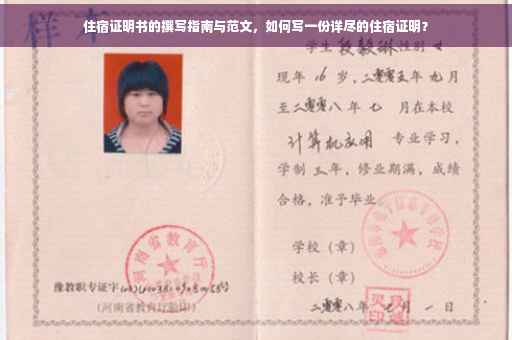 住宿证明书的撰写指南与范文，如何写一份详尽的住宿证明？
样本
学生段毅琳性别女
现年 16 岁，二零零五年九月
至二零零八年七 月在本校
计算机应用 专业学习，
学制三年，修业期满，成绩
合格，准予毕业
学校（章）
校长（章）
二零零八年七月一日
河南省教育厅
豫教职专证字
（河南省教育厅验印）